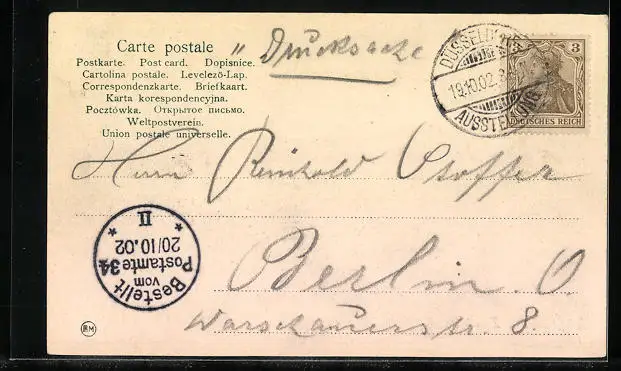 Carte postale
Postkarte. Post card. Dopisnice.
Cartolina postale. Levelező-Lap.
Correspondenzkarte. Briefkaart.
Karta korespondencyjna.
Pocztówka. Открытое письмо.
Weltpostverein.
Union postale universelle.
" Drucksache
DÜSSELDORF
19.10.02.8
AUSSTELLUNG
3
DEUTSCHES REICH
Herrn Reinhold Stoffer
Berlin. O.
Warschauerstr. 8.
Bestellt
vom
Postamte 34
20/10.02
* II *